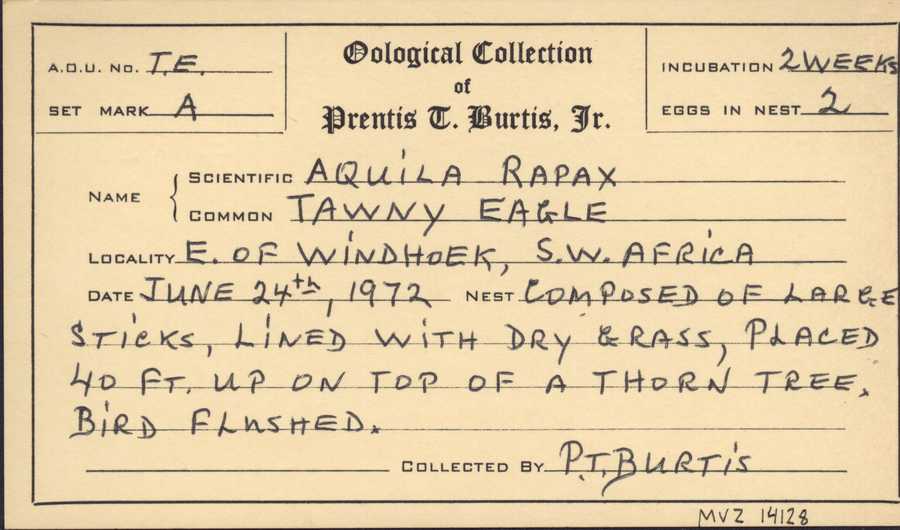 A.O.U. No. T.E.
SET MARK A
Oological Collection
of
Prentis T. Burtis, Jr.
INCUBATION 2 WEEKS
EGGS IN NEST 2
NAME
SCIENTIFIC AQUILA RAPAX
COMMON TAWNY EAGLE
LOCALITY E. OF WINDHOEK, S.W. AFRICA
DATE JUNE 24th, 1972 NEST COMPOSED OF LARGE
STICKS, LINED WITH DRY GRASS, PLACED
40 FT. UP ON TOP OF A THORN TREE.
BIRD FLUSHED.
COLLECTED BY P.T. BURTIS
MVZ 14128